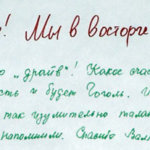 ! Мы в восторге
о "драйв"! Какое счас
сть и будет Гоголь. И
так изумительно талан
напомнили. Спасибо Вам